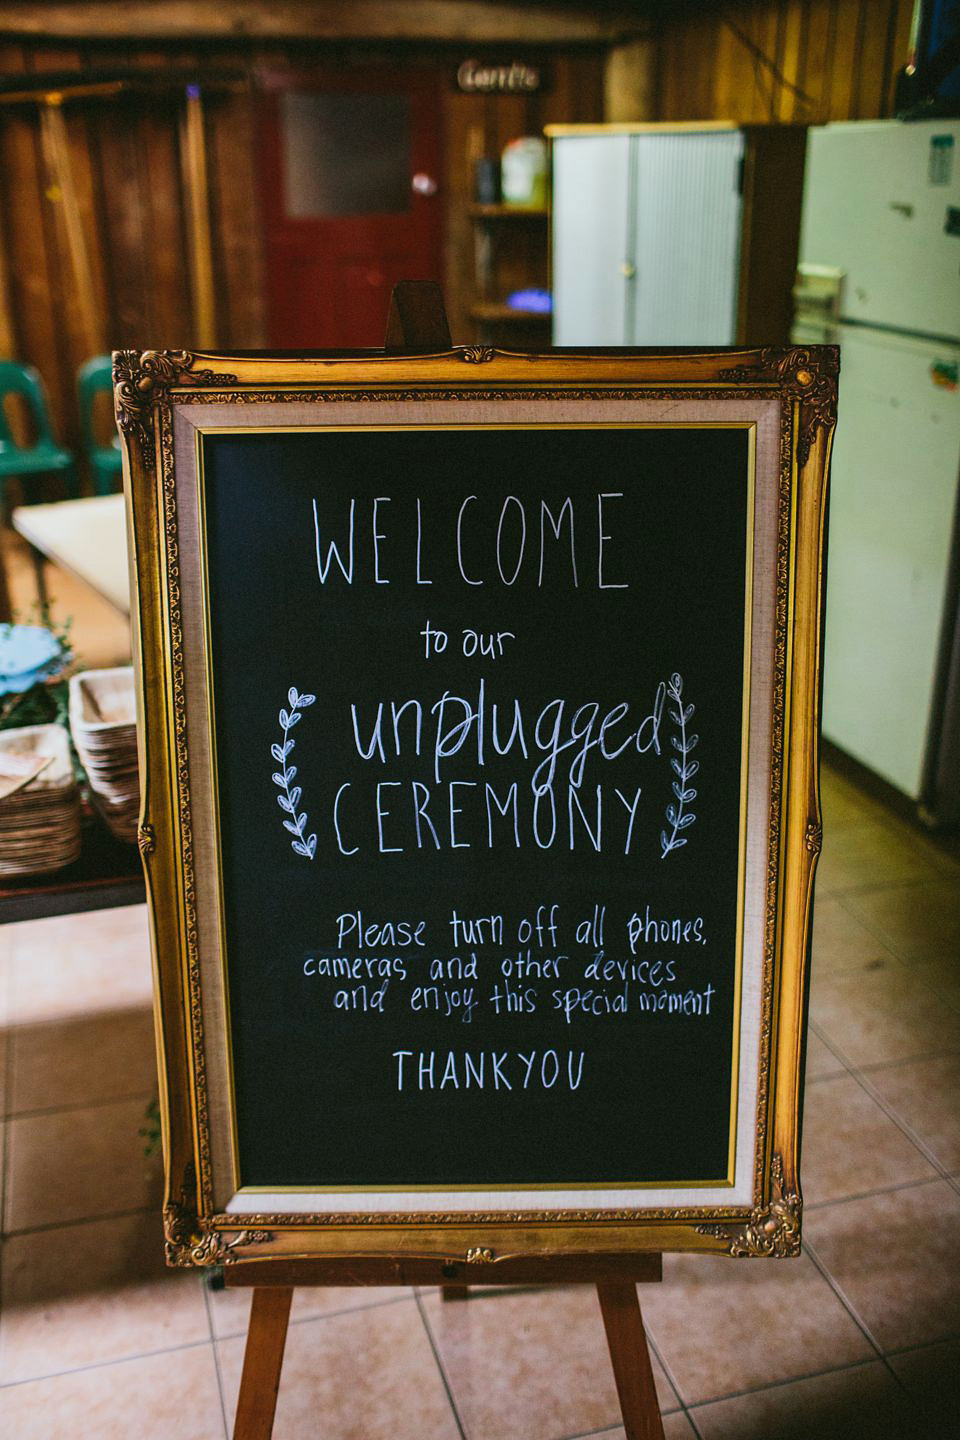 WELCOME
to our
unplugged
CEREMONY
Please turn off all phones,
cameras and other devices
and enjoy this special moment
THANKYOU